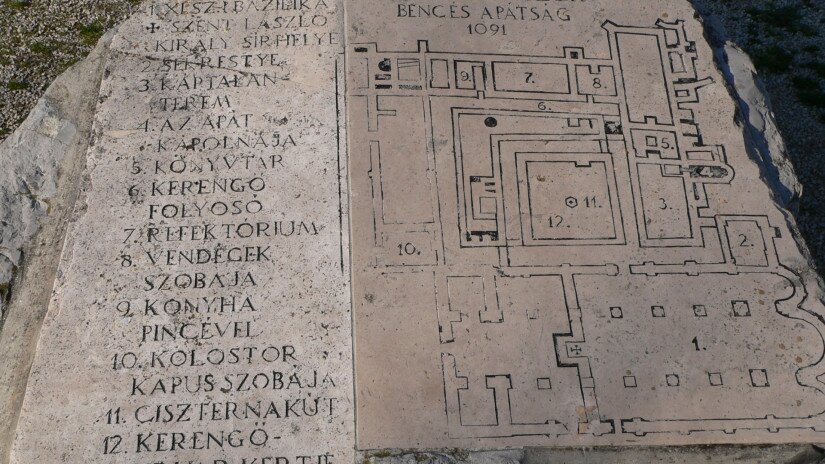 1. XÉSZ: BAZILIKA
✠ SZENT LÁSZLÓ
KIRÁLY SÍRHELYE
2. SEKRESTYE
3. KÁPTALAN-
TEREM
4. AZ APÁT
KÁPOLNÁJA
5. KÖNYVTÁR
6. KERENGŐ
FOLYOSÓ
7. REFEKTÓRIUM
8. VENDÉGEK
SZOBÁJA
9. KONYHA
PINCÉVEL
10. KOLOSTOR
KAPUS SZOBÁJA
11. CISZTERNAKÚT
12. KERENGŐ-
KERTJE
BENCÉS APÁTSÁG
1091
9.
7.
8.
6.
5.
11.
12.
3.
10.
2.
1.